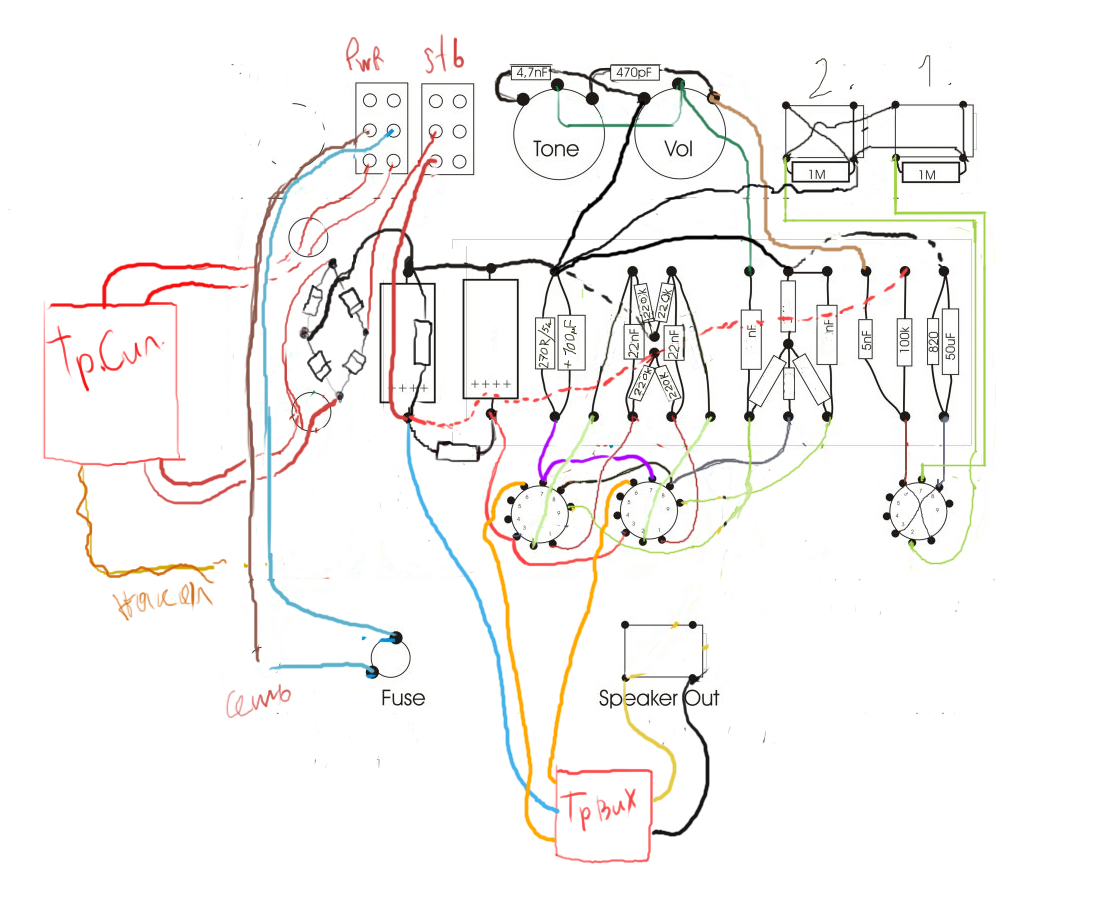 PwR
stb
4,7nF
470pF
2.
1.
Tone
Vol
1M
1M
Тр.Сил.
270R/5w
+ 100µF
22nF
220k
220k
22nF
220k
220k
nF
nF
5nF
100k
820
50uF
++++
++++
Накал
Сеть
Fuse
Speaker Out
Тр Вых